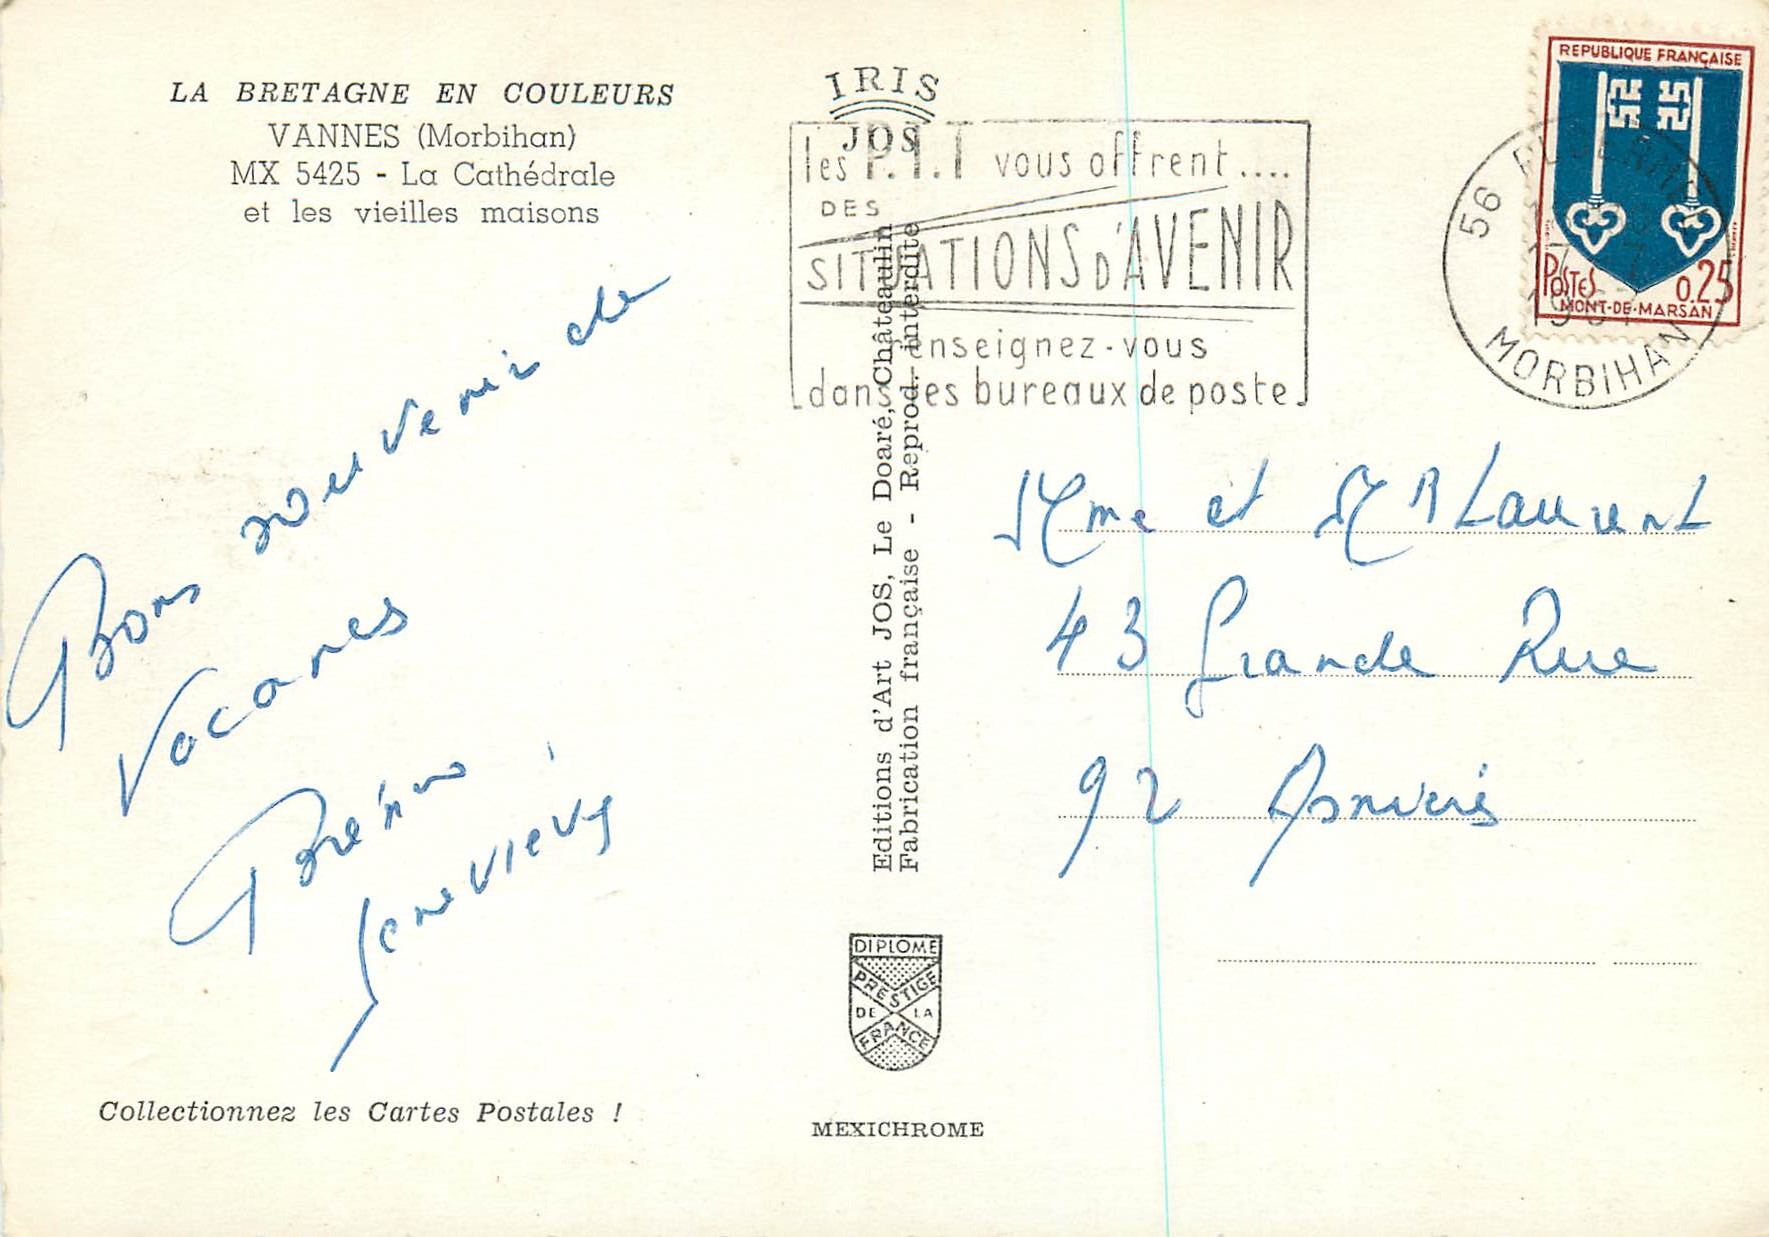 LA BRETAGNE EN COULEURS
VANNES (Morbihan)
MX 5425 - La Cathédrale
et les vieilles maisons
Bons souvenir de
Vacances
Geneviève
Collectionnez les Cartes Postales !
IRIS
JOS
Editions d'Art JOS, Le Doaré, Châteaulin
Fabrication française - Reprod. interdite
DIPLOME
PRESTIGE
DE LA
FRANCE
MEXICHROME
les P.T.T vous offrent....
DES
SITUATIONS D'AVENIR
renseignez-vous
dans les bureaux de poste
REPUBLIQUE FRANÇAISE
POSTES 0.25
MONT-DE-MARSAN
56
17 7
MORBIHAN
Mme et Mr Laurent
43 Grande Rue
92 Asnières